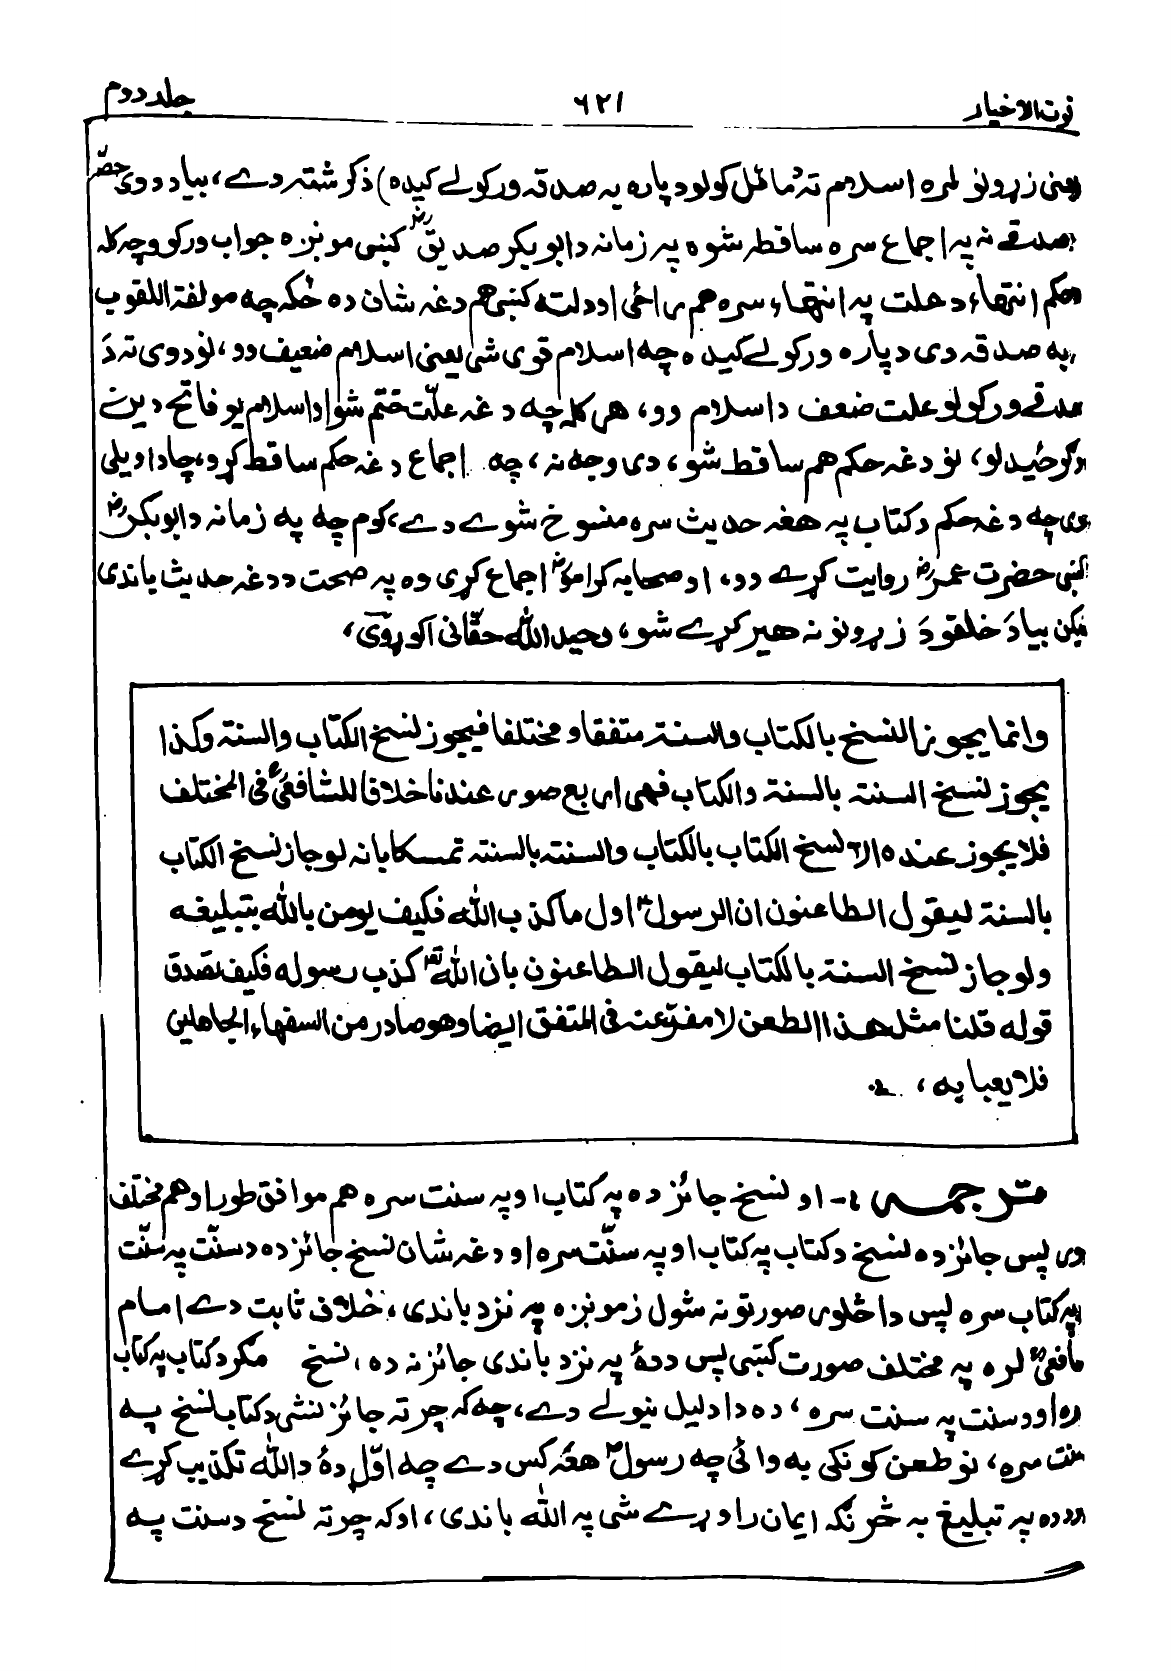 قوت الاخیار ۶۲۱ جلد دوم
یعنی زړونو لره اسلام ته د مائل کولو دپاره په صدقه ورکولے کیده) ذکر شته دے، بیا د دوی حصّه
صدقے نه په اجماع سره ساقطه شوه په زمانه د ابوبکر صدیقؓ کښی مونږه جواب ورکوو چه کله
حکم انتهاء د علت په انتهاء سره هم راځی او دلته کښی هم دغه شان ده ځکه چه مولفة القلوب
به صدقه دی دپاره ورکولے کیده چه اسلام قوی شی یعنی اسلام ضعیف دو، نو دوی ته دَ
صدقے ورکولو علت ضعف د اسلام دو، هرکله چه دغه علّت ختم شو او اسلام یو فاتح دین
وګرځیدلو، نو دغه حکم هم ساقط شو، دی وجه نه، چه اجماع دغه حکم ساقط کړو، چا دا ویلی
دی چه دغه حکم د کتاب په هغه حدیث سره منسوخ شوے دے، کوم چه په زمانه د ابوبکرؓ
کښی حضرت عمرؓ روایت کړے دو، او صحابه کراموؓ اجماع کړی وه په صحت د دغه حدیث باندی
لیکن بیا دَ خلقو دَ زړونو نه هیر کړے شو، وحید الله حقّانی اکوړوی،
وانما یجوز النسخ بالکتاب والسنة متفقا و مختلفا فیجوز نسخ الکتاب والسنة وکذا
یجوز نسخ السنة بالسنة والکتاب فهی اربع صور عندنا خلافا للشافعیؒ فی المختلف
فلا یجوز عنده الا نسخ الکتاب بالکتاب والسنة بالسنة تمسکا بانه لو جاز نسخ الکتاب
بالسنة لیقول الطاعنون ان الرسولؐ اول ما کذب الله فکیف یومن بالله بتبلیغه
ولو جاز نسخ السنة بالکتاب لیقول الطاعنون بان اللهؔ کذب رسوله فکیف نصدق
قوله قلنا مثل هذا الطعن لا مفر عنه فی المتفق ایضا وهو صادر من السفهاء الجاهلین
فلا یعبا به،
ترجمه ؛- او نسخ جائز ده په کتاب او په سنت سره هم موافق طور او هم مختلف
وی پس جائز ده نسخ د کتاب په کتاب او په سنّت سره او دغه شان نسخ جائز ده د سنّت په سنّت
په کتاب سره پس دا څلور صورتونه شول زمونږه په نزد باندی، خلاف ثابت دے امام
شافعیؒ لره په مختلف صورت کښی پس ددۀ په نزد باندی جائز نه ده، نسخ مګر د کتاب په کتاب
سره او د سنت په سنت سره، ده دا دلیل نیولے دے، چه که چرته جائز نشی د کتاب نسخ په
سنت سره، نو طعن کونکی به وائی چه رسولؐ هغه کس دے چه اوّل دۀ د الله تکذیب کړے
دده په تبلیغ به څرنګه ایمان راوړے شی په الله باندی، او که چرته نسخ د سنت په